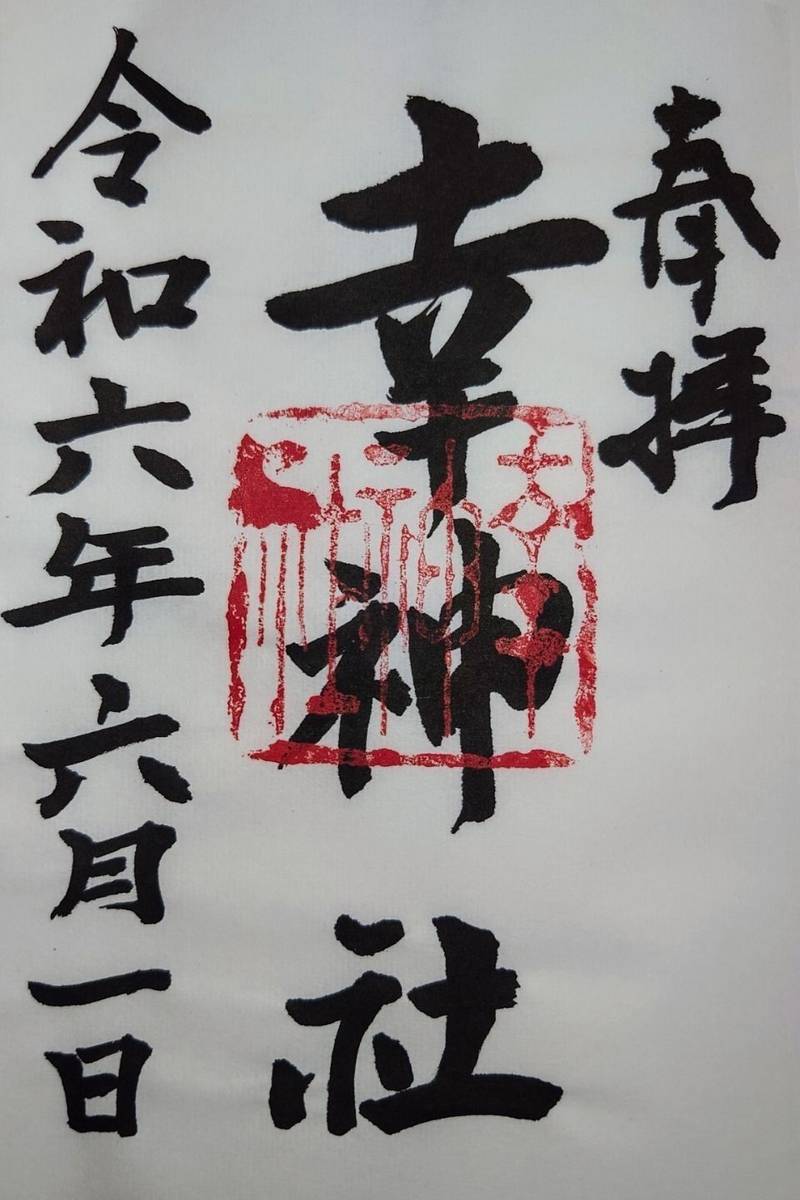 奉拝
幸神社
令和六年六月一日